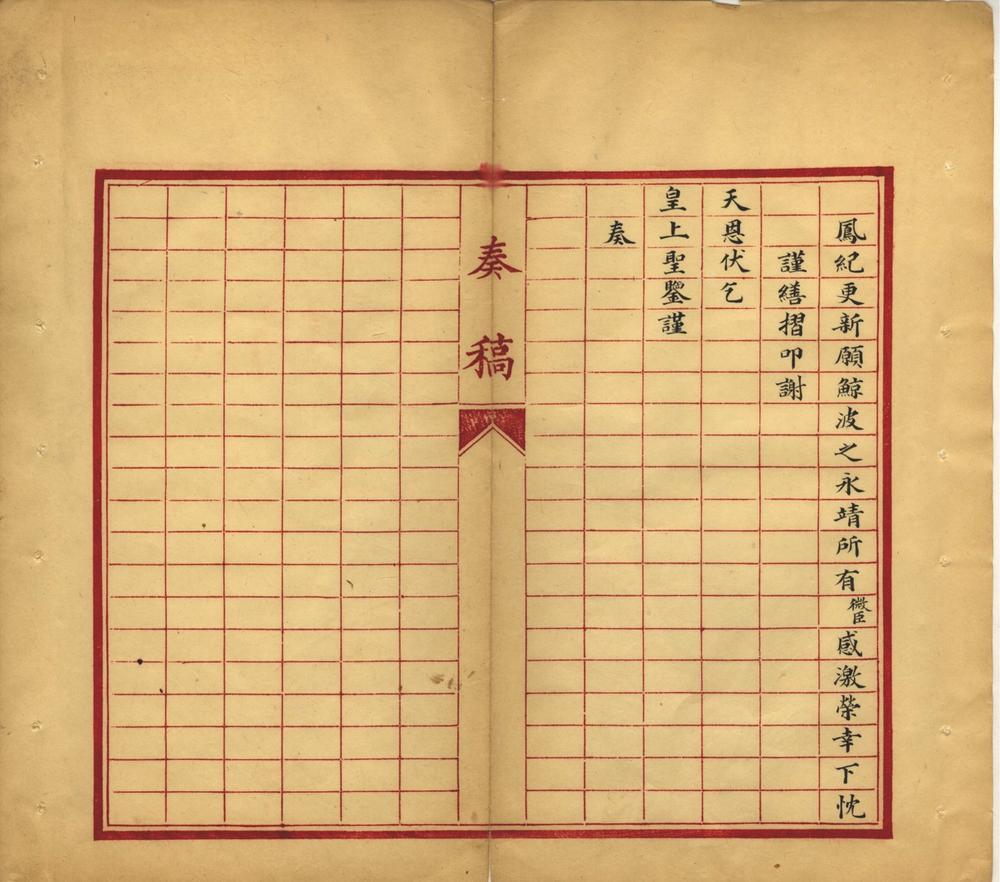 鳳紀更新願鯨波之永靖所有微臣感激榮幸下忱
謹繕摺叩謝
天恩伏乞
皇上聖鑒謹
奏
奏稿